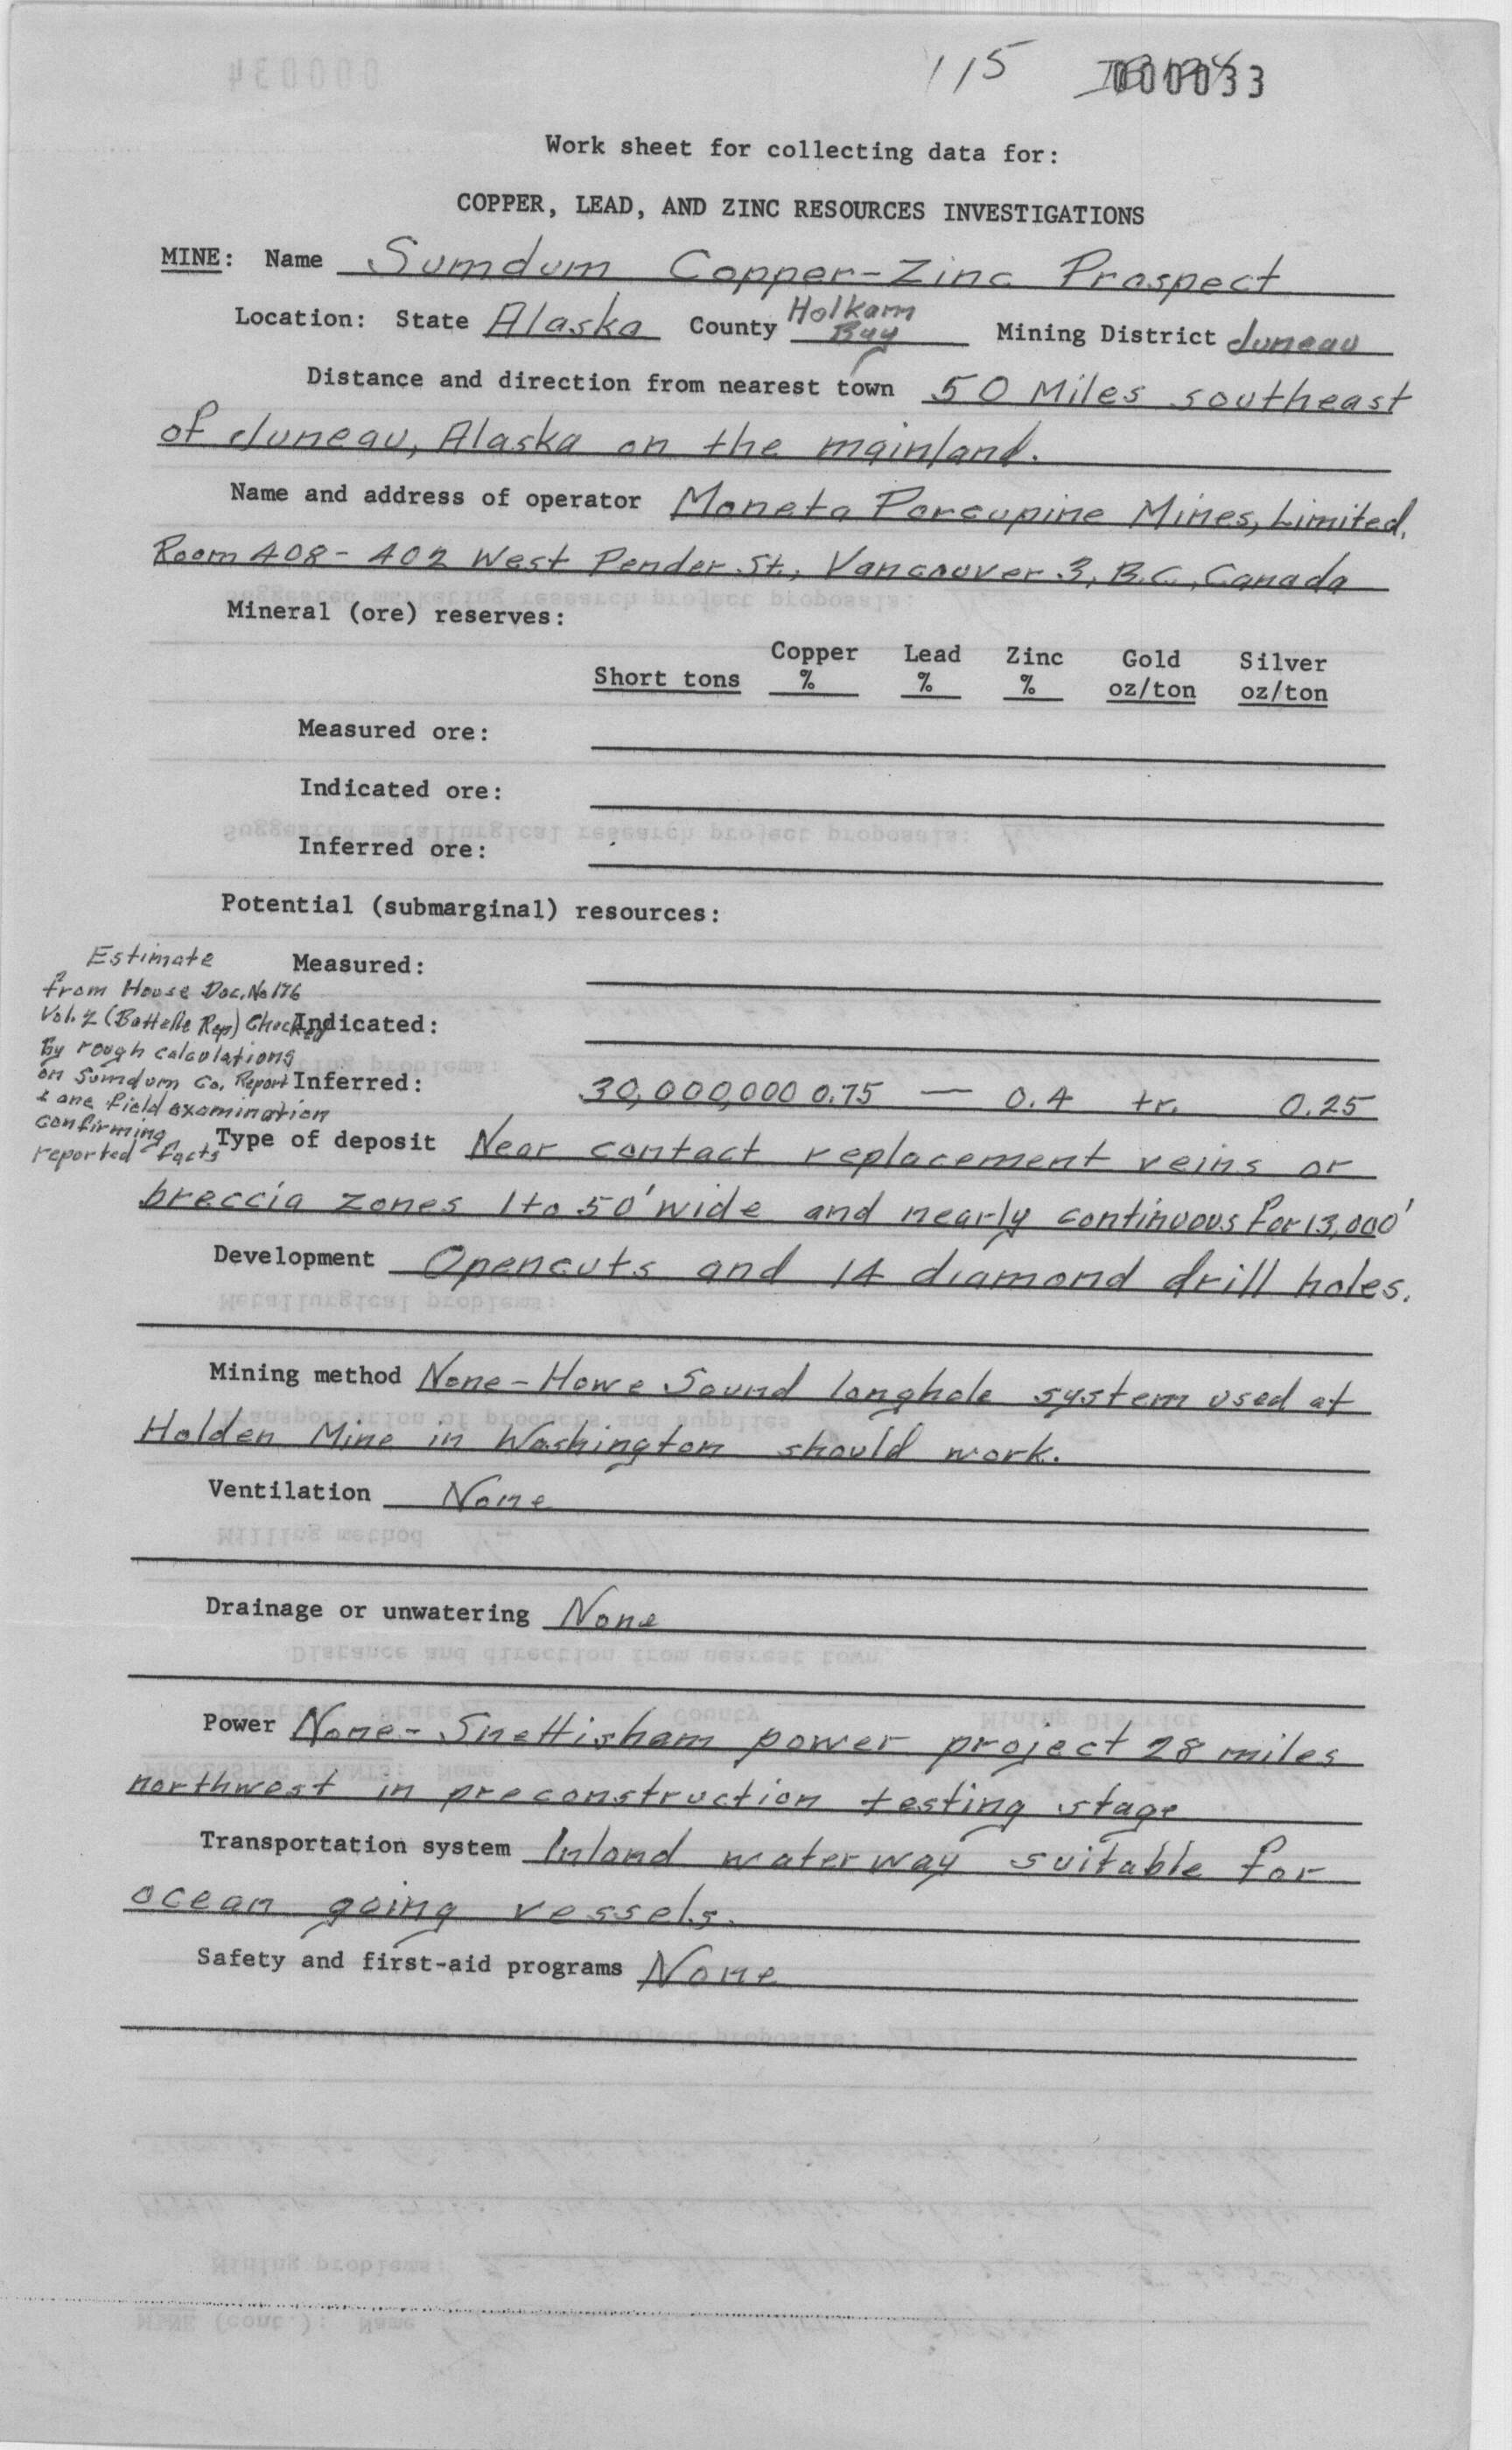 115
000033
Work sheet for collecting data for:
COPPER, LEAD, AND ZINC RESOURCES INVESTIGATIONS
MINE: Name Sumdum Copper-Zinc Prospect
Location: State Alaska County Holkam Bay Mining District Juneau
Distance and direction from nearest town 50 Miles southeast
of Juneau, Alaska on the mainland.
Name and address of operator Moneta Porcupine Mines, Limited,
Room 408 - 402 West Pender St., Vancouver 3, B.C., Canada
Mineral (ore) reserves:
Short tons Copper % Lead % Zinc % Gold oz/ton Silver oz/ton
Measured ore:
Indicated ore:
Inferred ore:
Potential (submarginal) resources:
Measured:
Indicated:
Inferred: 30,000,000 0.75 — 0.4 tr. 0.25
Estimate
from House Doc. No 176
Vol. (Battelle Rep) Checked
By rough calculations
on Sumdum Co. Report
& one field examination
confirming
reported facts
Type of deposit Near contact replacement veins or
breccia zones 1 to 50' wide and nearly continuous for 13,000'
Development Opencuts and 14 diamond drill holes.
Mining method None - Howe Sound longhole system used at
Holden Mine in Washington should work.
Ventilation None
Drainage or unwatering None
Power None - Snettisham power project 28 miles
northwest in preconstruction testing stage
Transportation system Inland waterway suitable for
ocean going vessels.
Safety and first-aid programs None